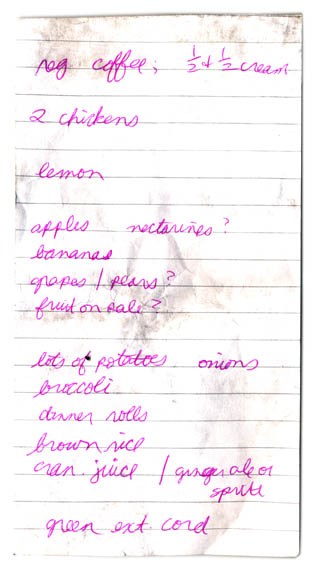 reg coffee; ½ + ½ cream
2 chickens
lemon
apples nectarines?
bananas
grapes / pears?
fruit on sale?
lots of potatoes onions
broccoli
dinner rolls
brown rice
cran. juice / ginger ale or
sprite
green ext. cord